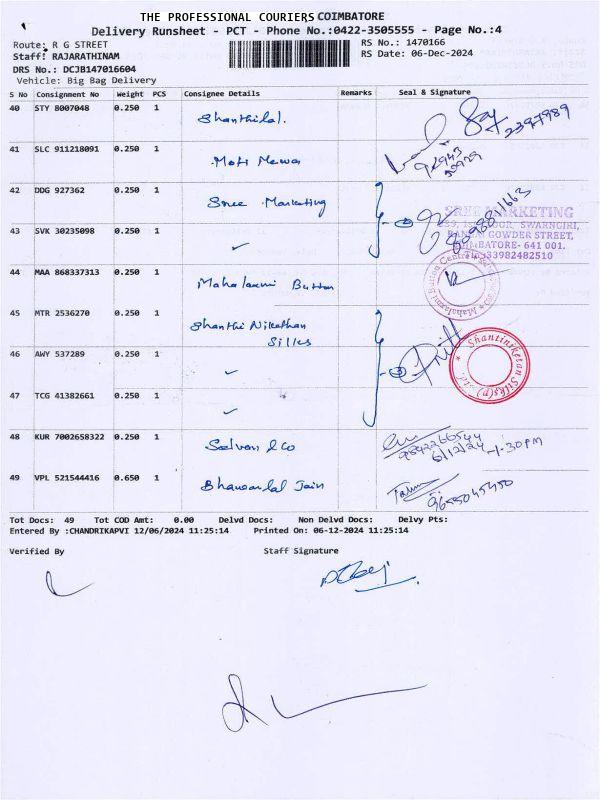 THE PROFESSIONAL COURIERS COIMBATORE
Delivery Runsheet - PCT - Phone No.:0422-3505555 - Page No.:4
Route: R G STREET
RS No.: 1470166
Staff: RAJARATHINAM
RS Date: 06-Dec-2024
DRS No.: DCJB147016604
Vehicle: Big Bag Delivery
S No Consignment No Weight PCS Consignee Details Remarks Seal & Signature
40 STY 8007048 0.250 1 Shanthilal.
2397989
41 SLC 911218091 0.250 1 Moti Mewa
42 DDG 927362 0.250 1 Sree Marketing
SREE MARKETING
SWARNGIRI,
GOWDER STREET,
COIMBATORE- 641 001.
43 SVK 30235098 0.250 1
44 MAA 868337313 0.250 1 Mahalaxmi Button
45 MTR 2536270 0.250 1 Shanthi Nikethan
Silks
Shantiniketan Silks(p) Ltd.
46 AWY 537289 0.250 1
47 TCG 41382661 0.250 1
48 KUR 7002658322 0.250 1 Selvan & Co
9842266544
6/12/24 -1.30PM
49 VPL 521544416 0.650 1 Bhawarlal Jain
9655045450
Tot Docs: 49 Tot COD Amt: 0.00 Delvd Docs: Non Delvd Docs: Delvy Pts:
Entered By :CHANDRIKAPVI 12/06/2024 11:25:14 Printed On: 06-12-2024 11:25:14
Verified By Staff Signature